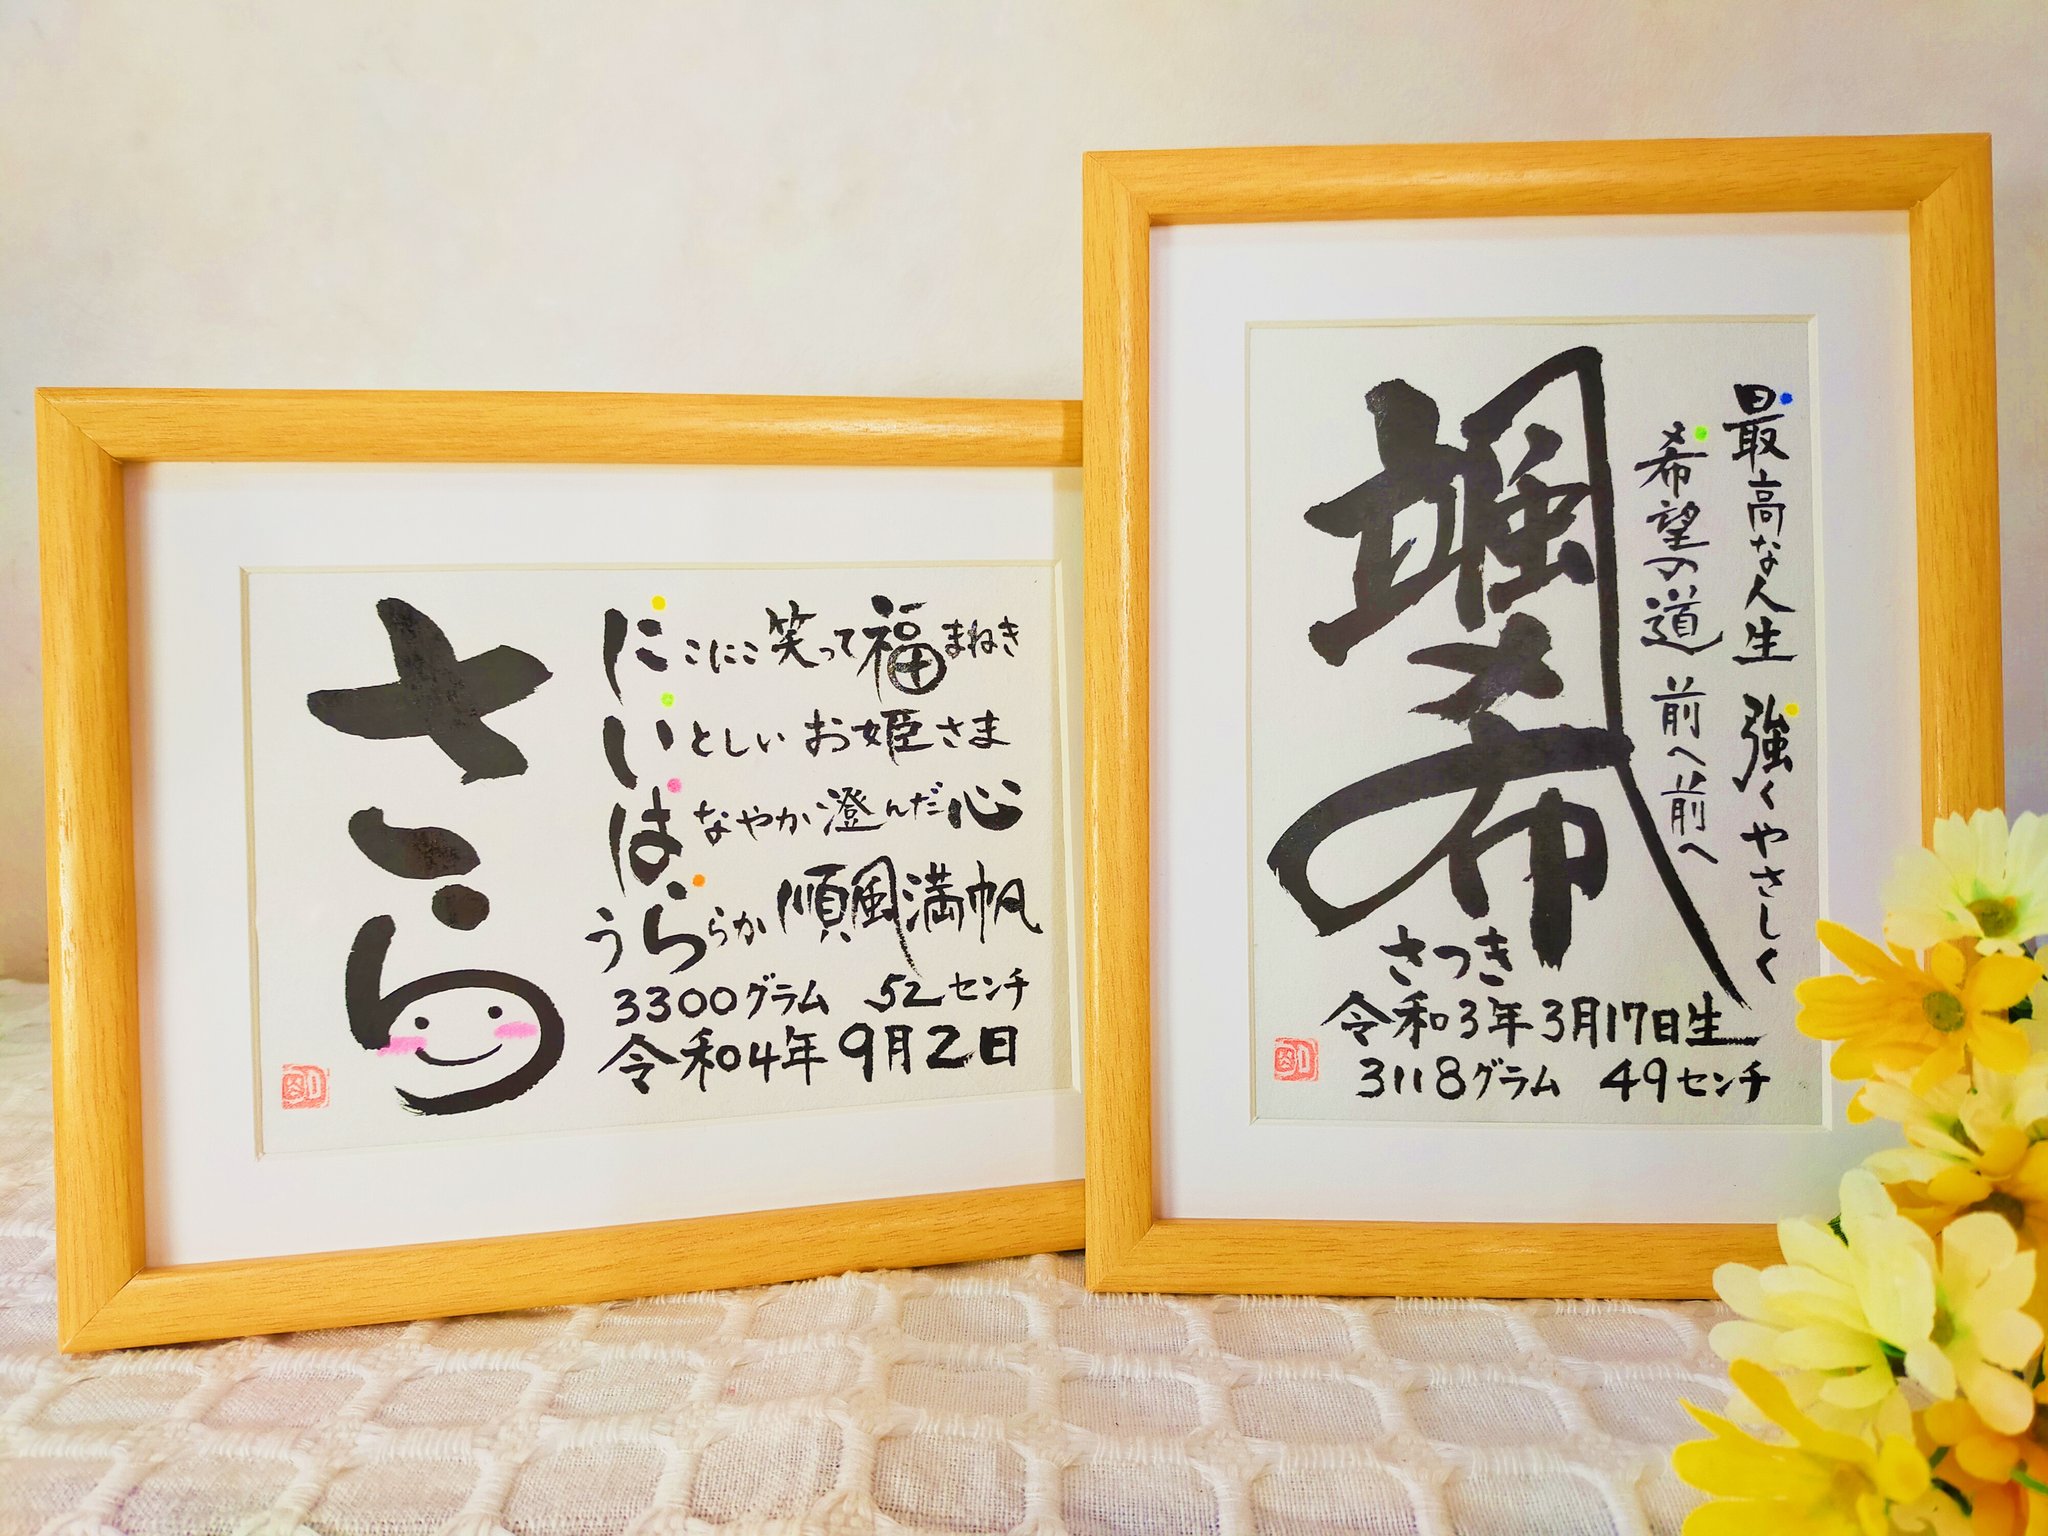 さら
にこにこ笑って福まねき
いとしいお姫さま
はなやか澄んだ心
うららか順風満帆
3300グラム 52センチ
令和4年9月2日
最高な人生 強くやさしく
希望の道 前へ前へ
颯希
さつき
令和3年3月17日生
3118グラム 49センチ